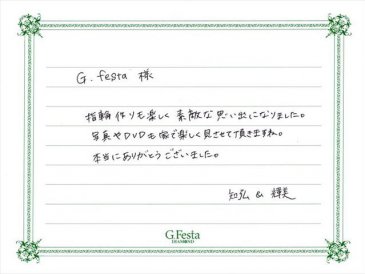 G.festa 様
指輪作りも楽しく素敵な思い出になりました。
写真やDVDも家で楽しく見させて頂きますね。
本当にありがとうございました。
知弘 & 輝美
G.Festa
DIAMOND